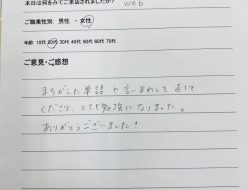 本日は何をみてご来店されましたか? web
ご職業性別: 男性 ・ 女性
年齢: 10代 20代 30代 40代 50代 60代 70代
ご意見・ご感想
まちがった単語や言いまわしを直して
くださり、とても勉強になりました。
ありがとうございました!